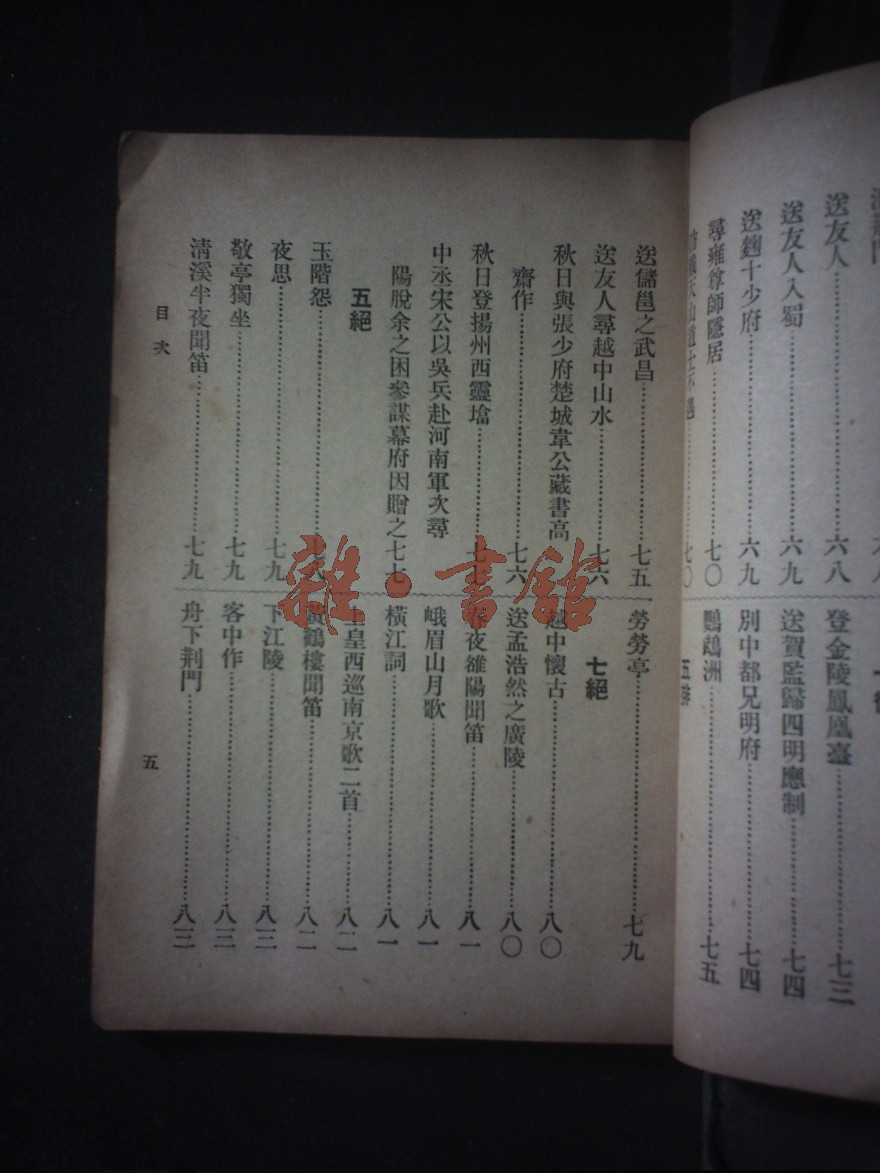 送友人……六八
送友人入蜀……六九
送麴十少府……六九
尋雍尊師隱居……七〇
七〇
登金陵鳳凰臺……七三
送賀監歸四明應制……七四
別中都兄明府……七四
鸚鵡洲……七五
送儲邕之武昌……七五
送友人尋越中山水……七六
秋日與張少府楚城韋公藏書高
齋作……七六
秋日登揚州西靈塔……七七
中丞宋公以吳兵赴河南軍次尋
陽脫余之囚參謀幕府因贈之七七
五絕
玉階怨……七八
夜思……七九
敬亭獨坐……七九
清溪半夜聞笛……七九
勞勞亭……七九
七絕
越中懷古……八〇
送孟浩然之廣陵……八〇
春夜雒陽聞笛……八一
峨眉山月歌……八一
橫江詞……八一
上皇西巡南京歌二首……八二
黃鶴樓聞笛……八二
下江陵……八三
客中作……八三
舟下荆門……八三
目次
五
雜·書館